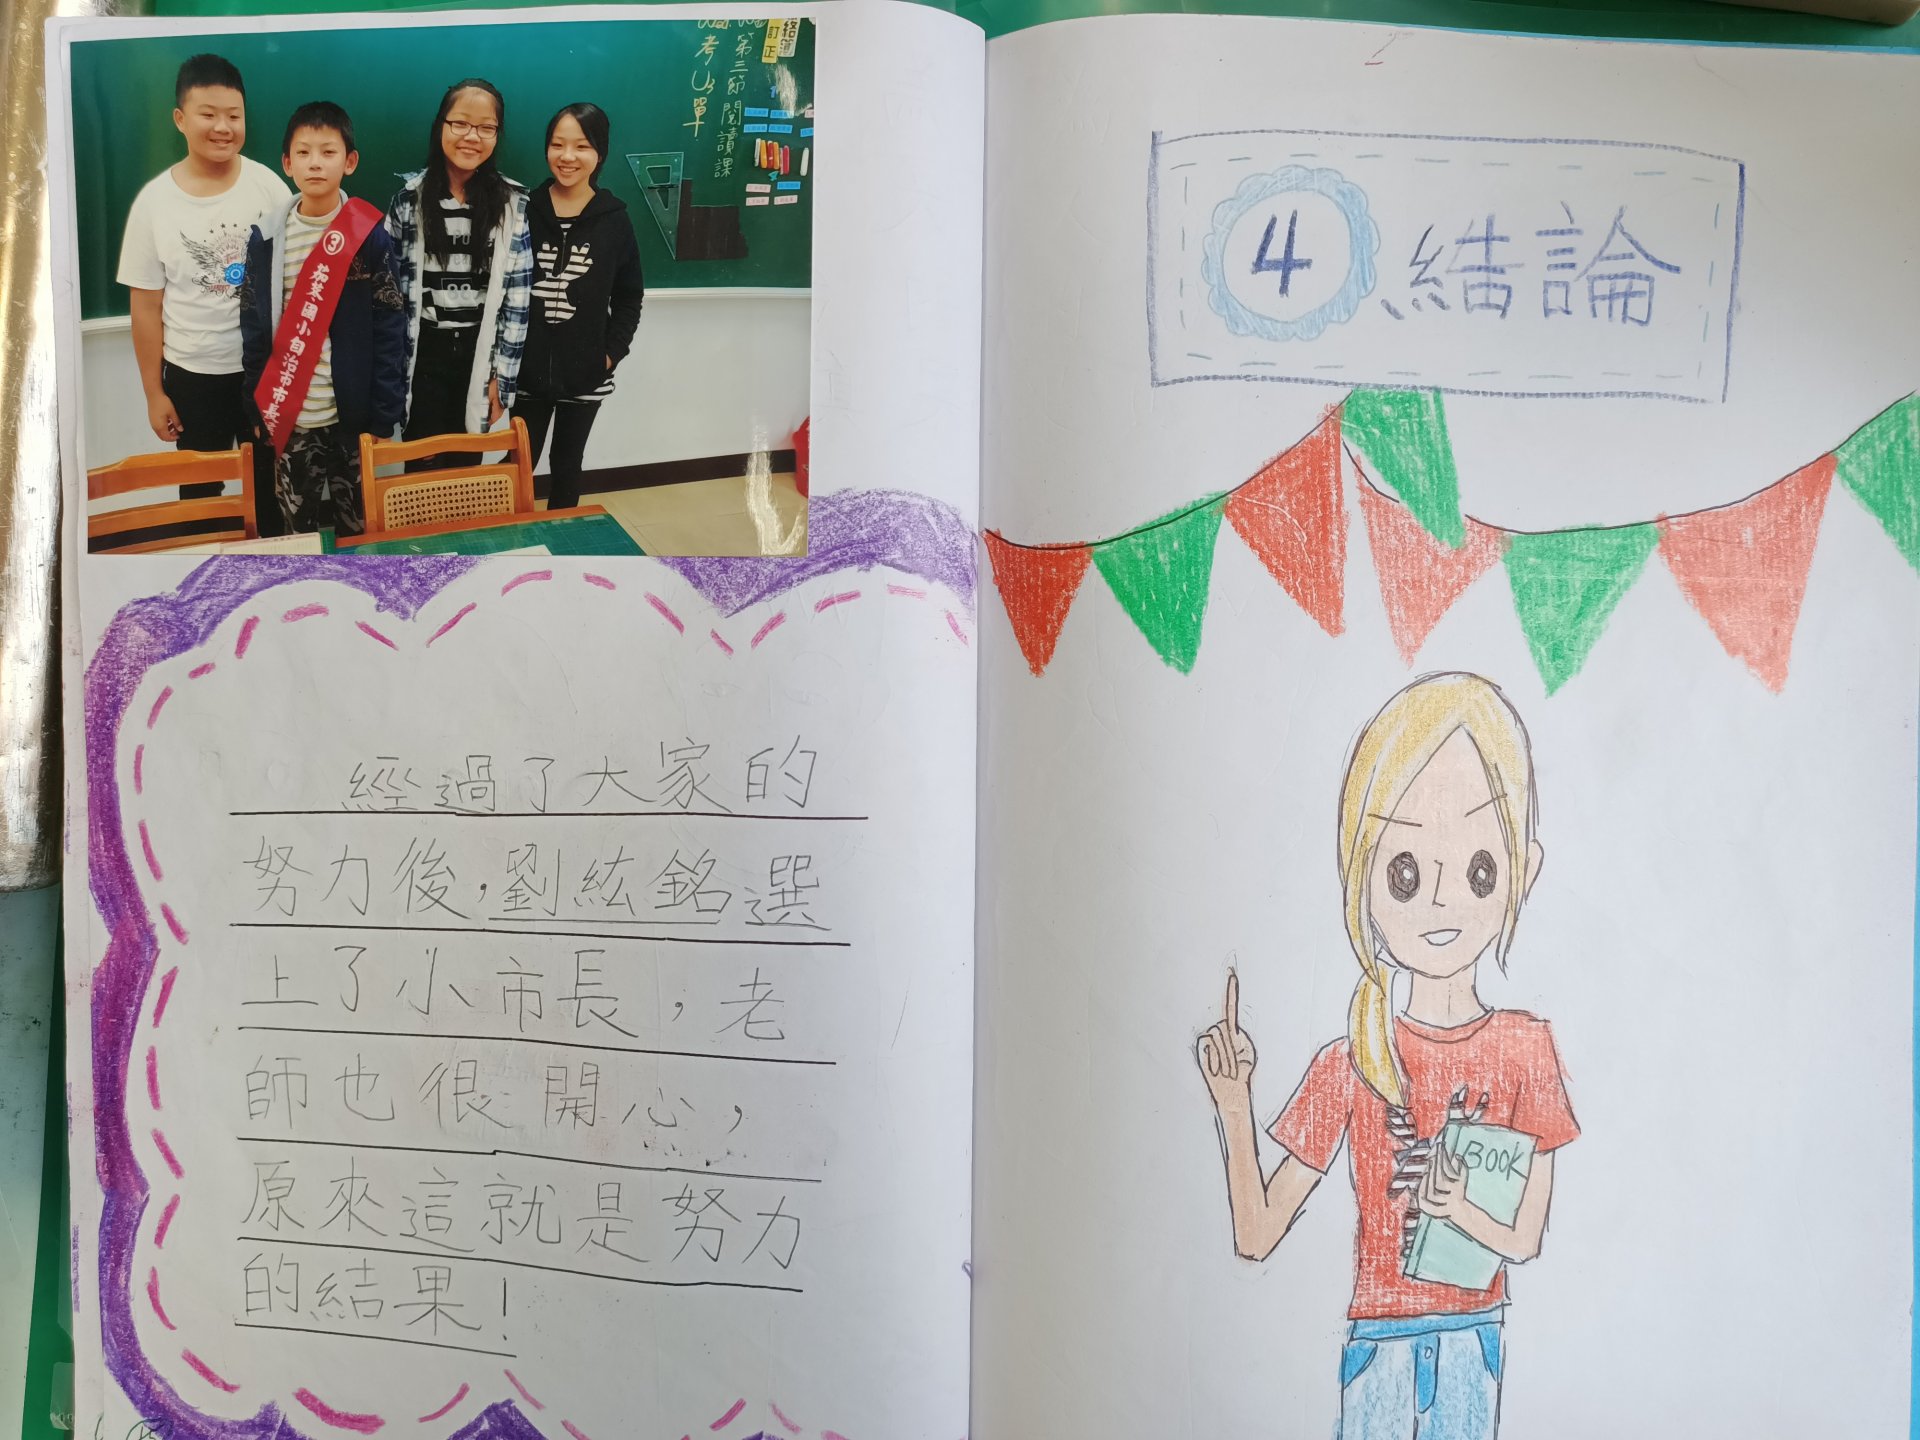 第三節閱讀課
考U3單
訂正
③茄萣國小自治市市長
PO
88
經過了大家的
努力後，劉紘銘選
上了小市長，老
師也很開心，
原來這就是努力
的結果！
4 結論
BOOK